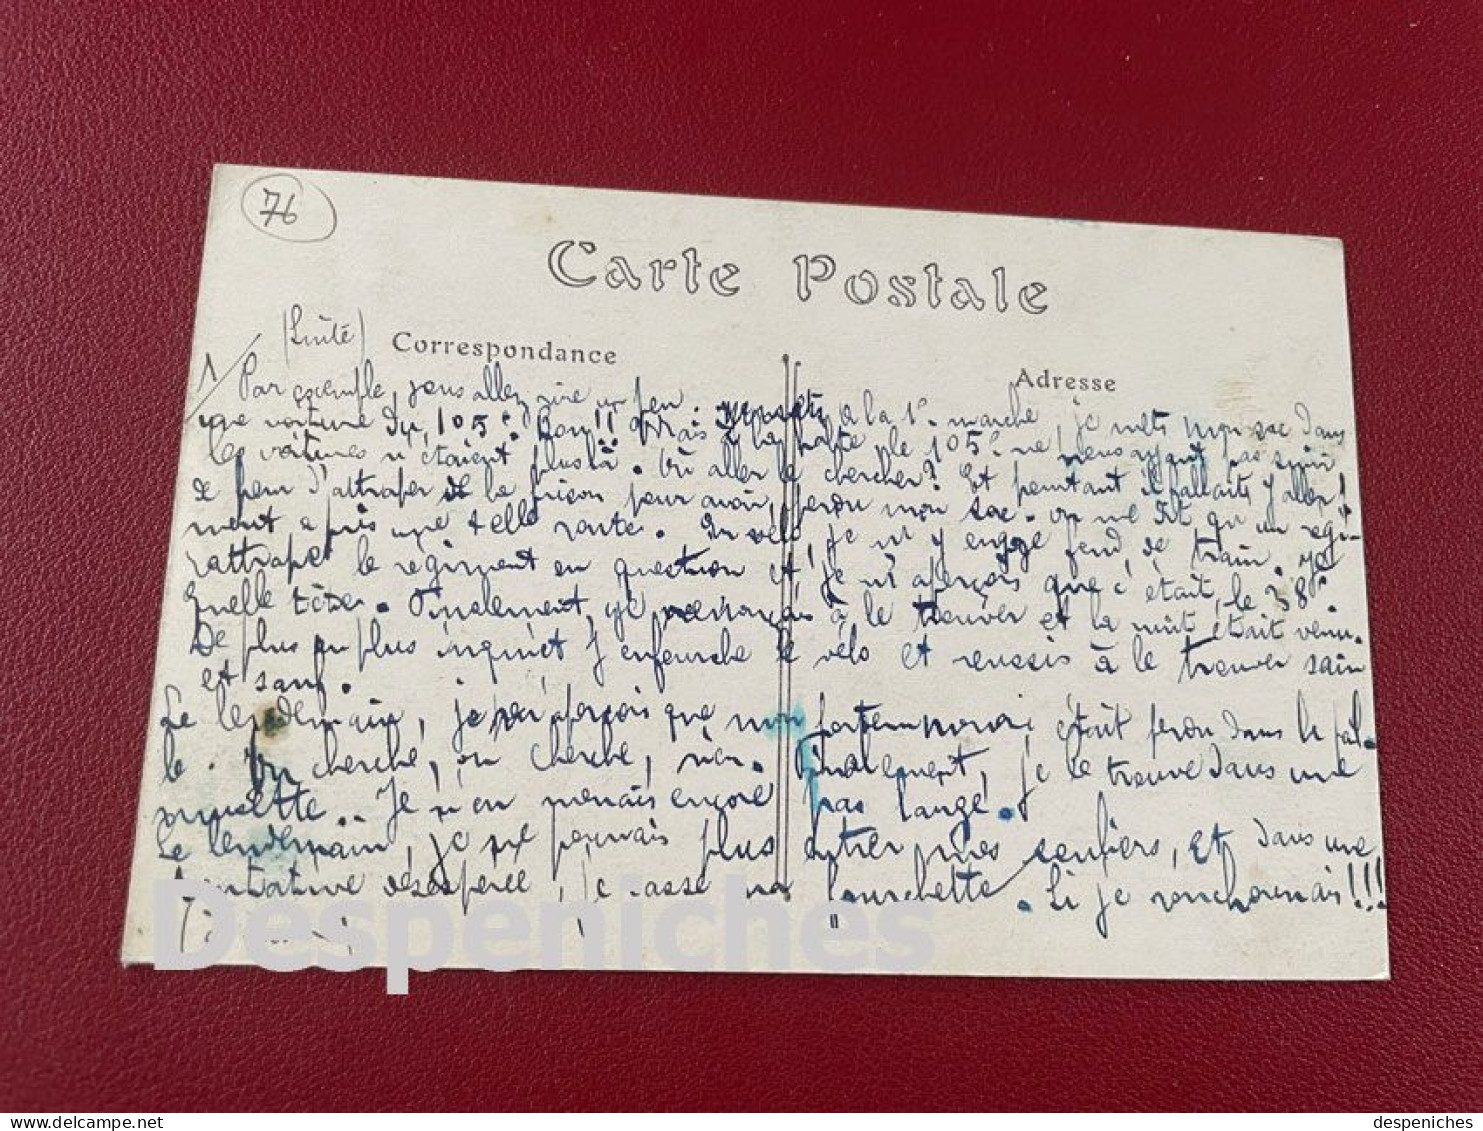 76
Carte Postale
1/ (Suite) Correspondance
Adresse
Par exemple, vous allez rire un peu. à la 1e marche, je mets mon sac dans
une voiture du 105e. Bon!! Mais à la halte, le 105e ne nous ayant pas suivi
les voitures n'étaient plus là. Où aller le chercher? Et pourtant il fallait y aller!
de peur d'attraper de la prison pour avoir perdu mon sac. On me dit qu'un régi-
ment a pris une telle route. En vélo, je m'y engage fond de train. Je
rattrape le régiment en question et je m'aperçois que c'était le 38e.
Quelle tête. Finalement, je renonçais à le trouver et la nuit était venu.
De plus en plus inquiet j'enfourche le vélo et reussis à le trouver sain
et sauf.
Le lendemain, je m'aperçois que mon portemonnaie était perdu dans la pail-
le. On cherche, on cherche, rien. Finalement, je le trouve dans une
musette.. Je n'en menais encore pas large.
Le lendemain, je ne pouvais plus entrer mes souliers, et dans une
tentative désespérée, je casse ma fourchette. Si je ronchonnais!!!
Despeniches
despeniches